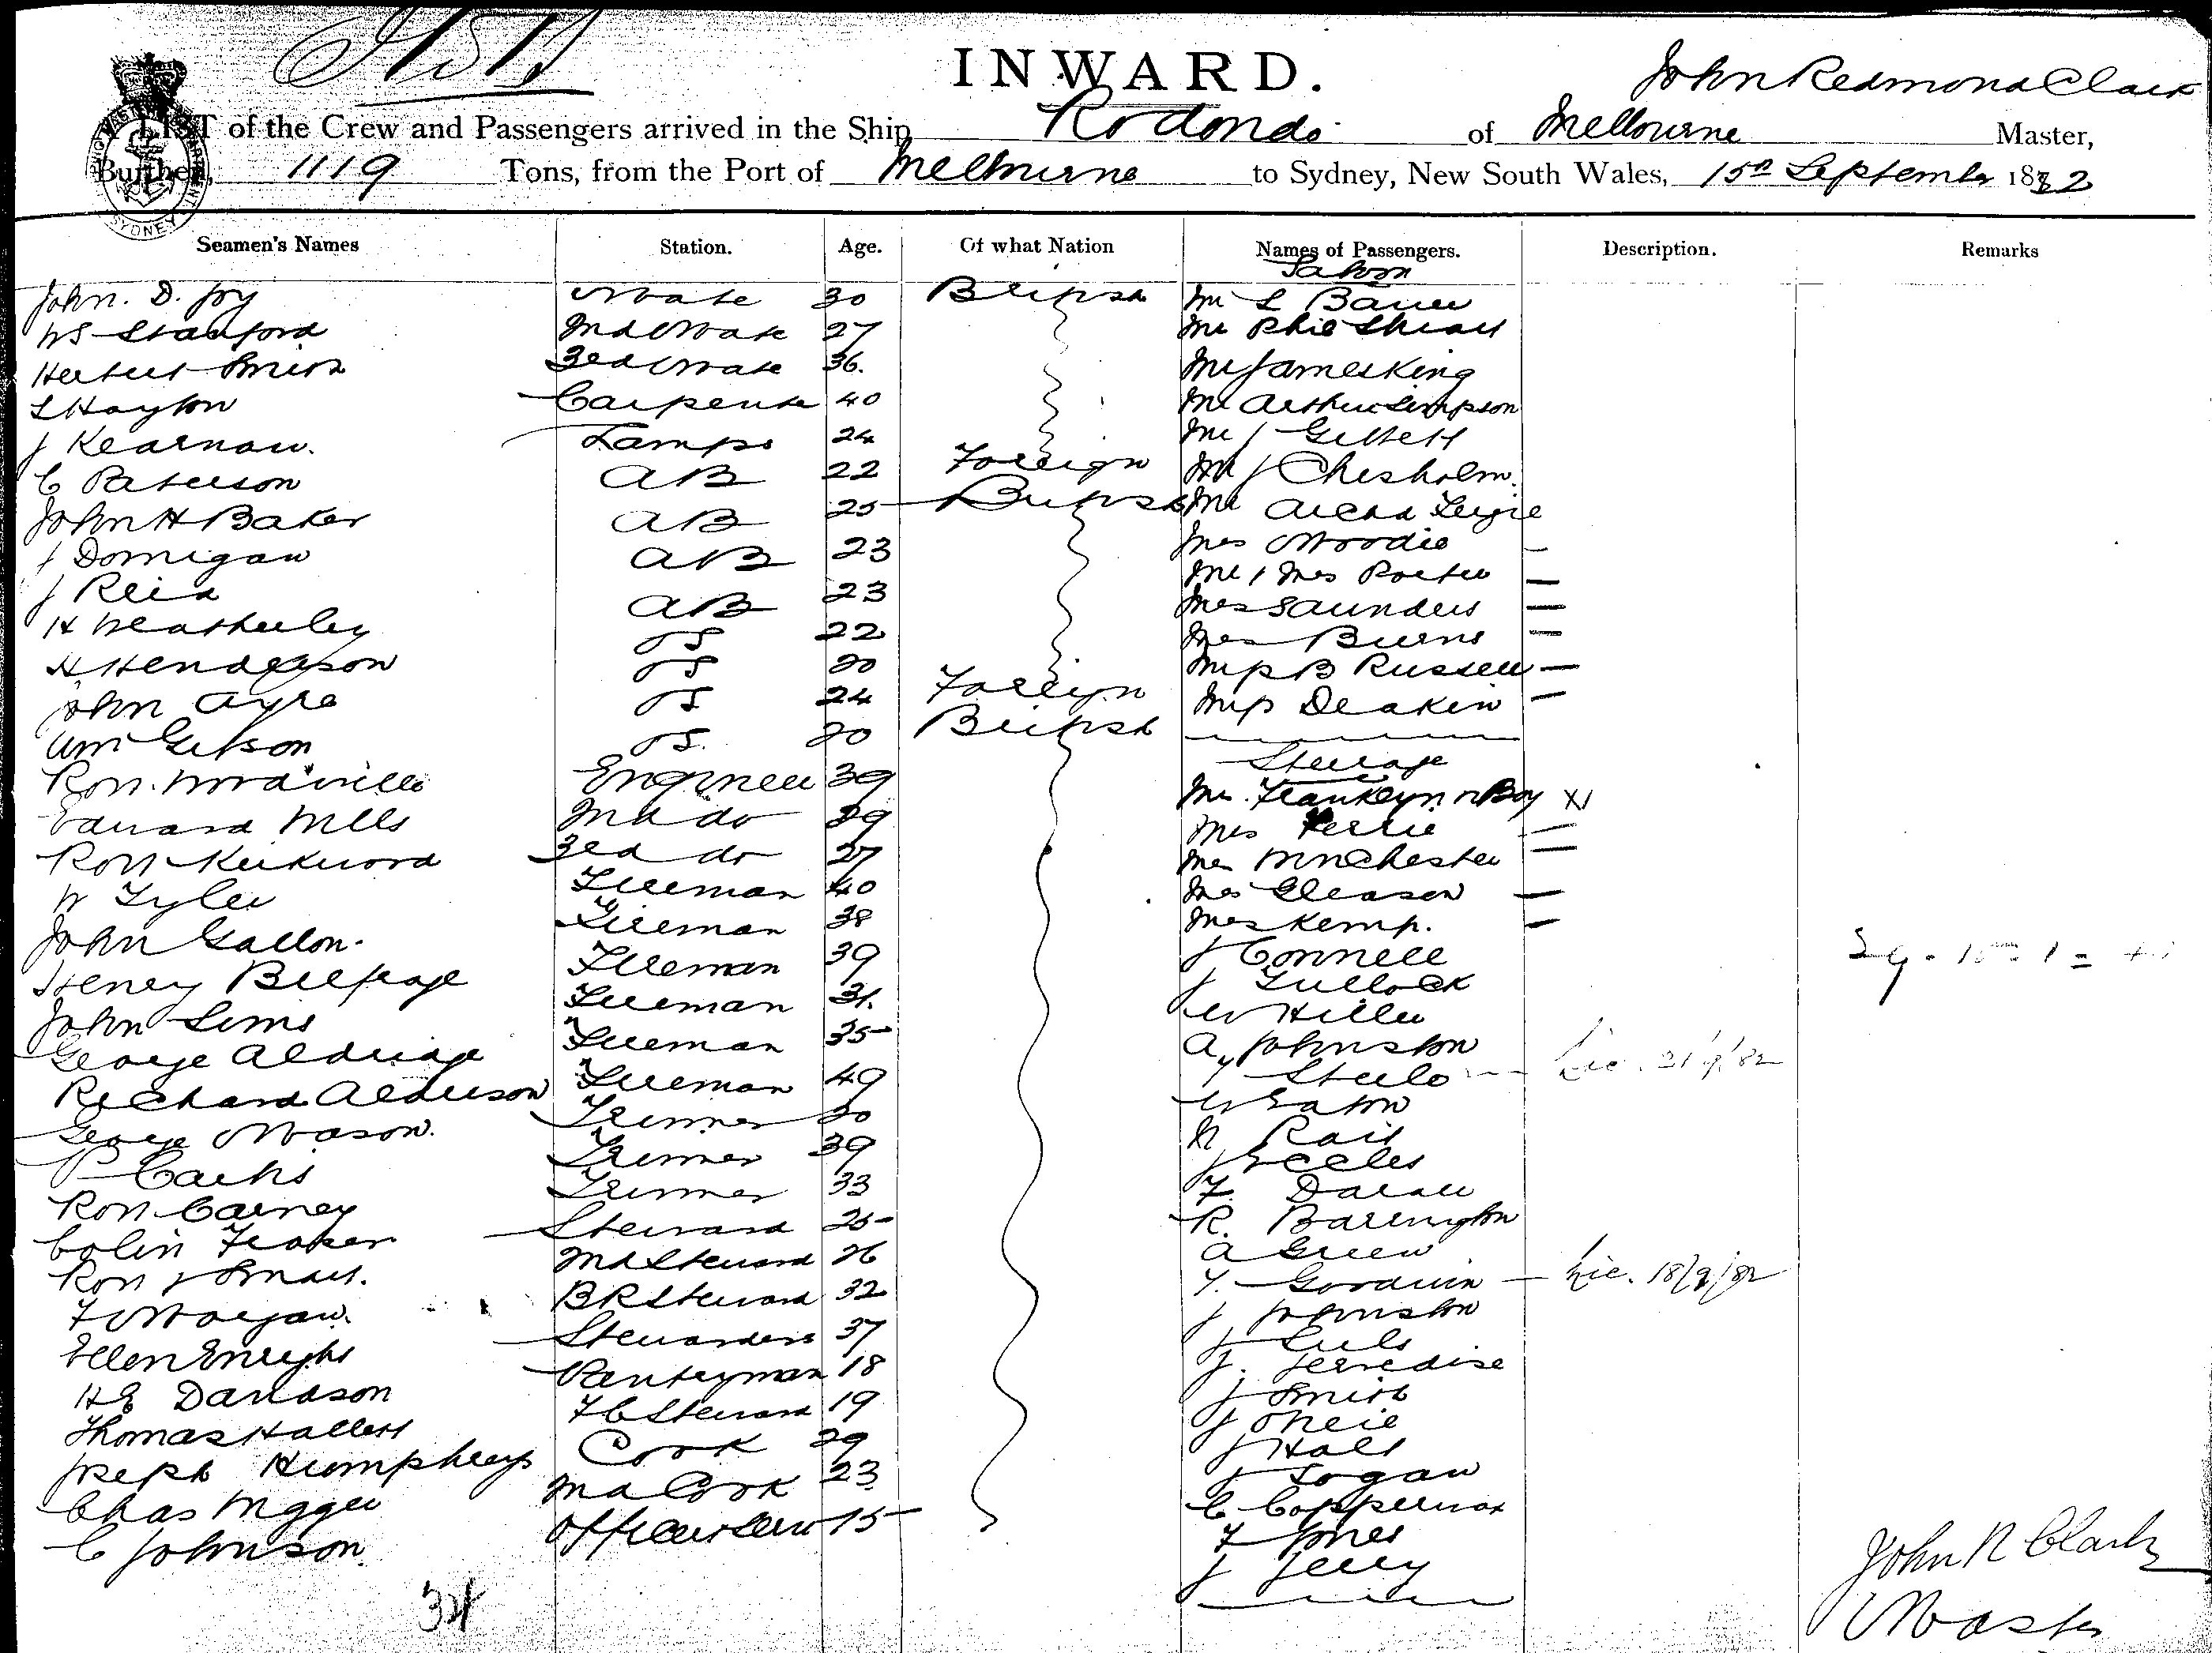 INWARD.
John Redmond Clark
LIST of the Crew and Passengers arrived in the Ship Rodondo of Melbourne Master,
Burthen, 1119 Tons, from the Port of Melbourne to Sydney, New South Wales, 15th September 1882
SYDNEY
Seamen's Names Station. Age. Of what Nation Names of Passengers. Description. Remarks
Saloon
John. D. Joy Mate 30 British Mr L
WS Stanford 2nd Mate 27 Mr Phil
Herbert Smith 3rd Mate 36. Mr James King
L Hayton Carpenter 40 Mr Arthur Simpson
J Kearnan. Lamps 24 Mr J
C Paterson AB 22 Foreign Mr J Chesholm.
John H Baker AB 25 British Mr
J Domigan AB 23 Mrs Moodie
J Reid AB 23 Mr & Mrs Porter
H Weatherley OS 22 Mrs Saunders
H Henderson OS 20 Mrs Burns
John Ayre OS 24 Foreign Miss B Russell
Wm Gibson OS. 20 British Miss Deakin
Steerage
Robt. Engineer 39 Mrs. Franklyn & Boy
Edward Mills 2nd do 29 Mrs
Robt Kirkwood 3rd do 27 Mrs Winchester
W Tyler Fireman 40 Mrs Gleason
John Gallon. Fireman 38 Mrs Kemp.
Henry Fireman 39 J Connell
John Sims Fireman 31. J Tullock
George Aldridge Fireman 35 W Hiller
Richard Alderson Fireman 49 A Johnston
Steele Lic. 21/9/82
George Mason. Trimmer 20 W Eaton
P Trimmer 39
Robt Carney Trimmer 33 J Eccles
Colin Fraser Steward 25 F.
Robt J Small. 2nd Steward 26 R. Barrington
F Morgan. BR Steward 32 A Green
Ellen Enright Stewardess 37 Goodwin Lic. 18/9/82
HE Davidson Pantryman 18 J Johnston
Thomas Hallett FC Steward 19 J.
Joseph Humphreys Cook 29 J Smith
Chas 2nd Cook 23 J O'Neil
C Johnson 15 J Hall
J Logan
C
F Jones
J
34
John R Clark
Master